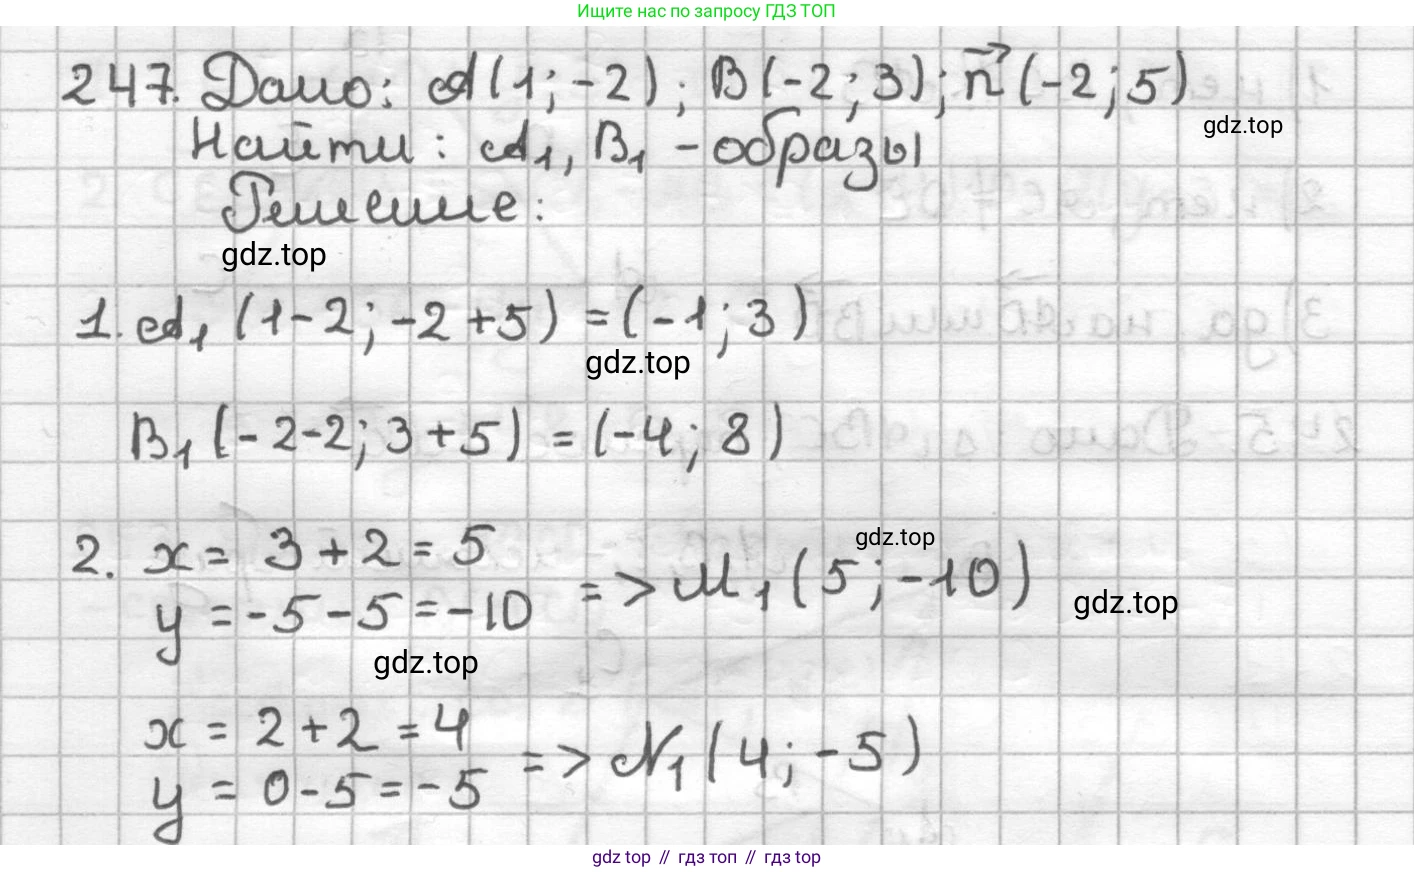 Ищите нас по запросу ГДЗ ТОП
247. Дано: A(1; -2); B(-2; 3); n⃗(-2; 5)
gdz.top
Найти: A₁, B₁ - образы
Решение:
gdz.top
1. A₁ (1-2; -2+5) = (-1; 3)
gdz.top
B₁ (-2-2; 3+5) = (-4; 8)
gdz.top
2. x = 3+2 = 5
y = -5-5 = -10 => M₁ (5; -10)
gdz.top
gdz.top
x = 2+2 = 4
y = 0-5 = -5 => N₁ (4; -5)
gdz top // гдз топ // gdz top